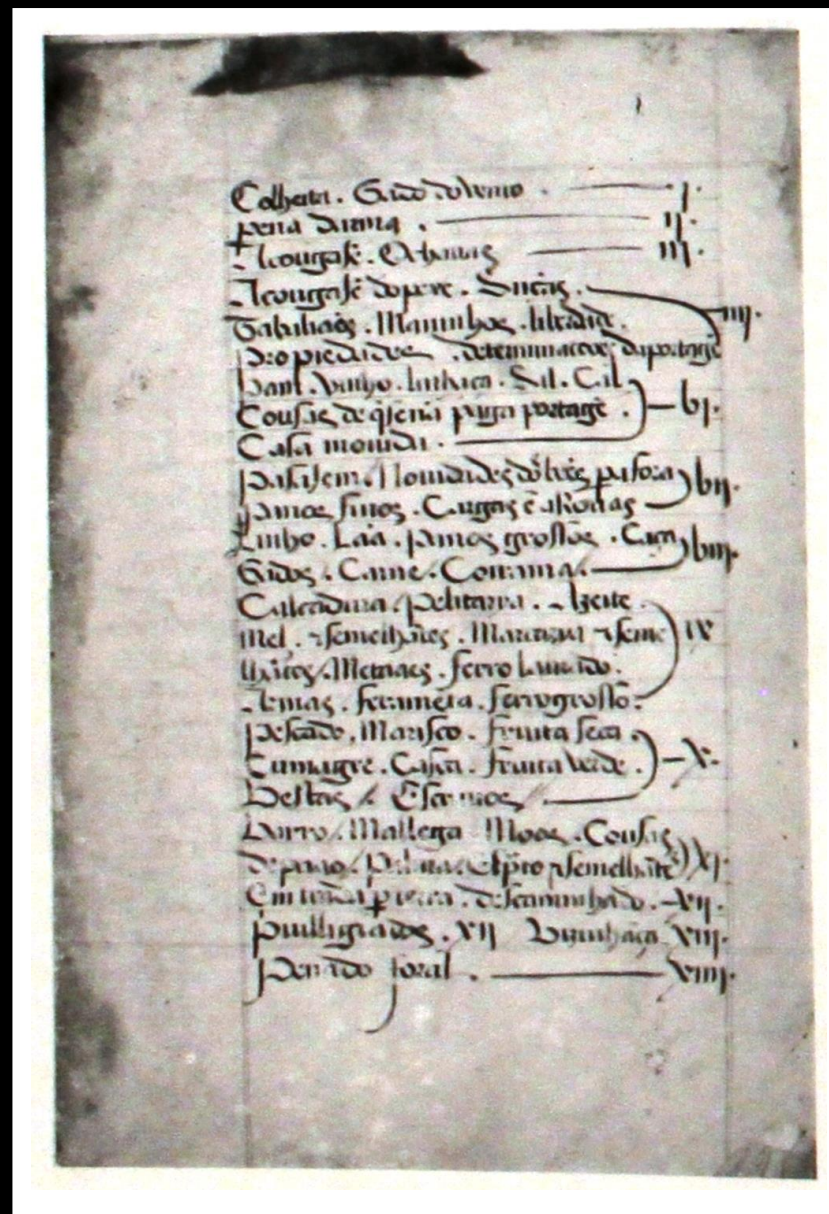 Colheita . Gado do vento . j.
pena darma . ij.
Açougaje . iij.
Açougaje do pexe . iiij.
Tabaliaẽs . Maninhos .
propiedades . determinações da portagẽ
pam . vinho . linhaça . Sal . Cal .
Cousas de q̃ senã paga portagẽ . bj.
Casa mouida .
pasajem . Nouidades dos beẽs pa fora bij.
panos finos . Cargas ẽ
Linho . Lãa . panos grossos . Caça biij.
Gados . Carne . Coirama .
Calçadura . pelitaria . Azeite .
Mel . ⁊ semelhãtes . ⁊ seme ix
lhãtes . Metaaes . ferro laurado .
Armas . ferramẽta . ferro grosso .
pescado . Marisco . fruita seca .
Çumagre . Casca . fruita verde . x.
Bestas . Escrauos
Barro . Mallega Moos . Cousas
de paao . palma . esp̃to ⁊ semelhãtẽs xj.
Entrada p terra . descaminhado . xij.
priuiligiados . xij Vizinhãça xiij.
pena do foral . xiiij.